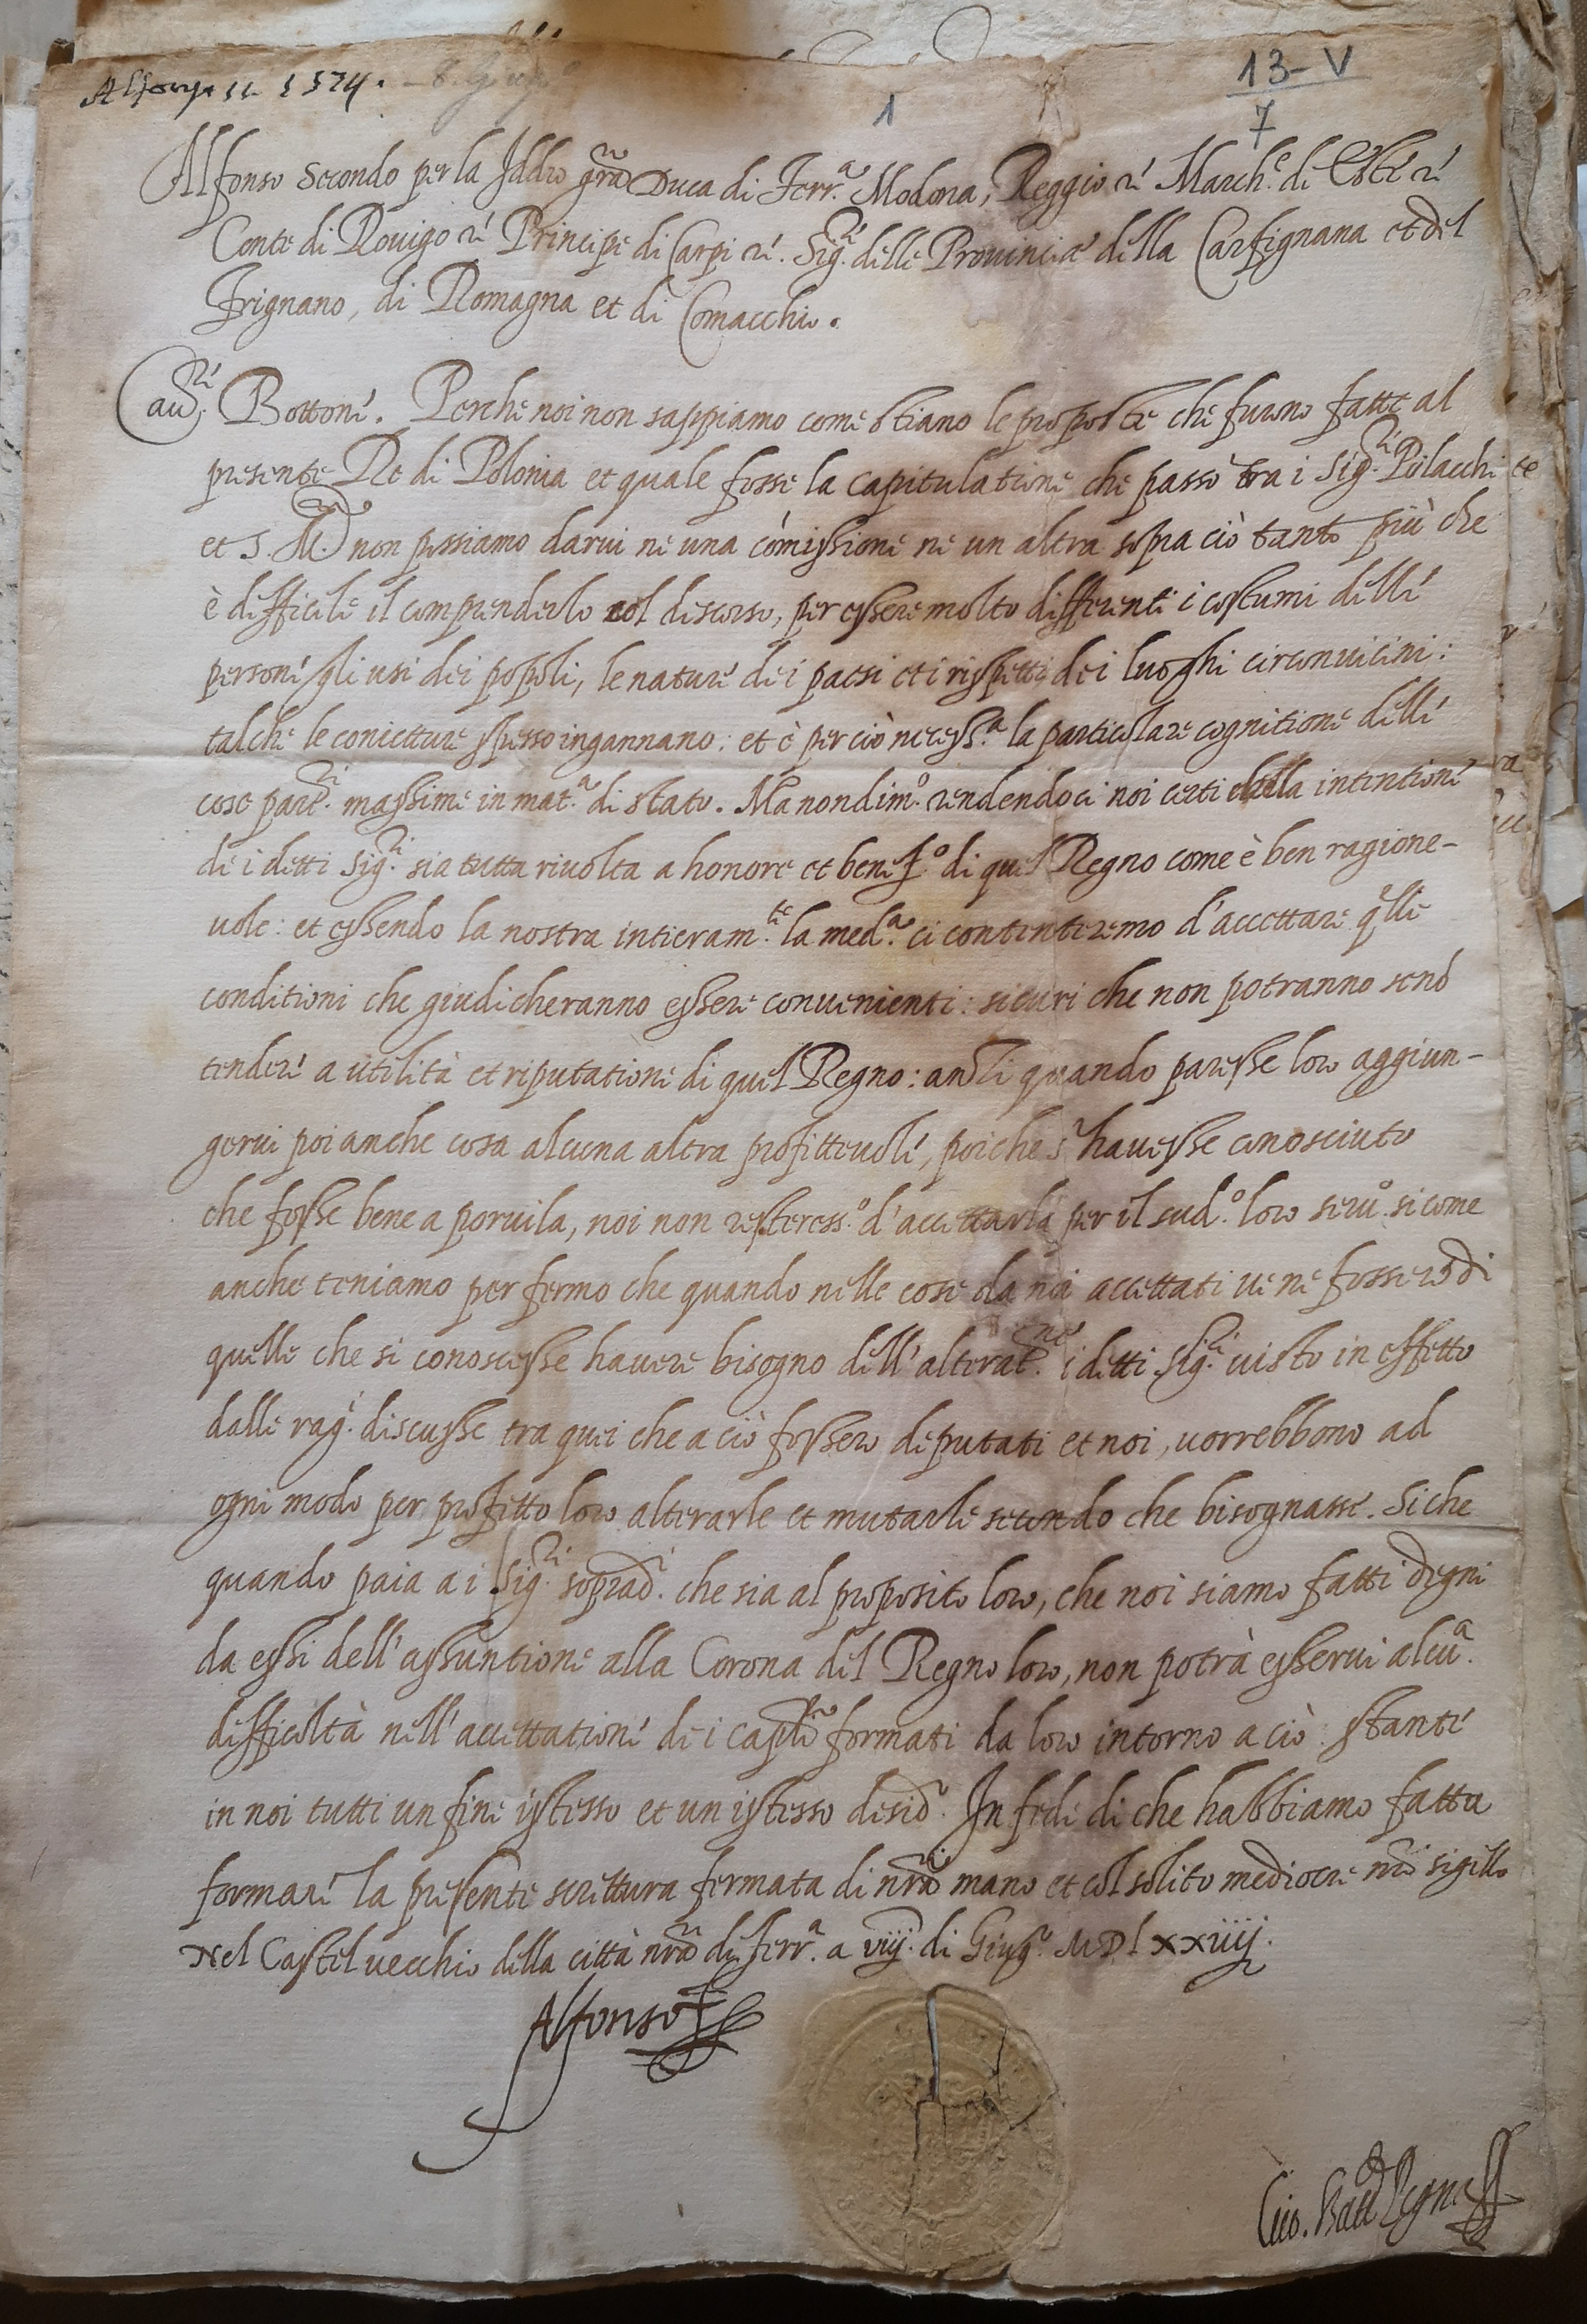 Alfonso II 1574. – 8. Giug.o
13-V
7
1
Alfonso Secondo per la Iddio gra Duca di Ferr.a Modona, Reggio et March.e di Este et
Conte di Rovigo et Principe di Carpi et. Sig.re delle Provincie della Carfignana et del
Frignano, di Romagna et di Comacchio.
Cav.re Bottone. Perche noi non sappiamo come stiano le proposte che furono fatte al
presente Re di Polonia et quale fosse la capitulatione che passò tra i Sig.ri Polacchi
et S. M. non possiamo darvi ne una cómissione ne un altra sopra ciò tanto più che
è difficile il comprenderlo col discorso, per essere molto differenti i costumi delle
persone gli usi dei popoli, le nature dei paesi et i rispetti dei luoghi circonvicini:
talche le conietture spesso ingannano: et è perciò necess.a la particolare cognitione delle
cose par.ri massime in mat.a di stato. Ma nondim.o rendendoci noi certi della intentione
de i detti Sig.ri sia tutta rivolta a honore et benef.o di quel Regno come è ben ragione-
vole: et essendo la nostra intieram.te la med.a ci contenteremo d'accettare qlle
conditioni che giudicheranno essere convenienti: sicuri che non potranno senò
tendere a utilità et riputatione di quel Regno: anzi quando paresse loro aggiun-
gervi poi anche cosa alcuna altra profittevole, poiche s'havesse conosciuto
che fosse bene a porvila, noi non resteress.o d'accettarla per il sud.o loro serv.o si come
anche teniamo per fermo che quando nelle cose da noi accettati ve ne fossero di
quelle che si conoscesse havere bisogno dell'alterat.ne i detti Sig.ri visto in effetto
dalle rag.i discusse tra quei che a ciò fossero deputati et noi, vorrebbono ad
ogni modo per profitto loro alterarle et mutarle secondo che bisognasse. Siche
quando paia a i Sig.ri soprad.i che sia al proposito loro, che noi siamo fatti degni
da essi dell'assuntione alla Corona del Regno loro, non potrà esservi alcu.a
difficoltà nell'accettatione de i capli formati da loro intorno a ciò: stante
in noi tutti un fine istesso et un istesso desid. In fede di che habbiamo fatta
formare la presente scrittura fermata di nra mano et col solito mediocre nro sigillo
Nel Castel vecchio della città nra di Ferr.a a viij. di Giug.o MDLxxiiij.
Alfonso
Gio. Batt